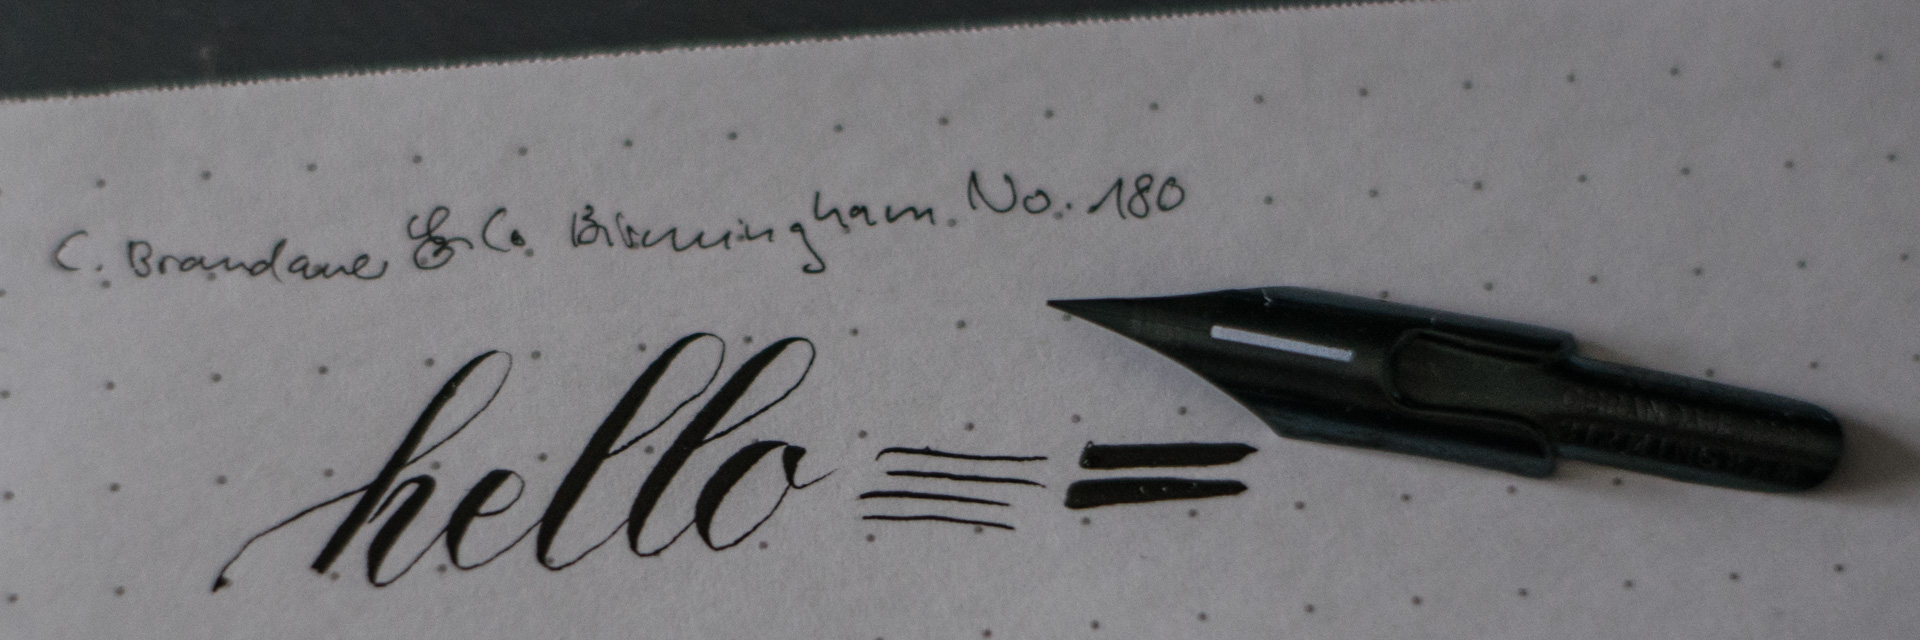 C. Brandauer & Co. Birmingham. No. 180
hello